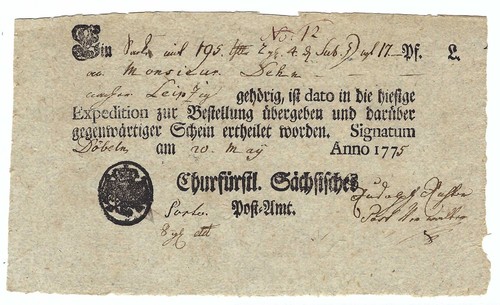 No: 12
Ein mit 195. 4. 17.—Pf. L.
an Monsieur Dehn
nacher Leipzig gehörig, ist dato in die hiesige
Expedition zur Bestellung übergeben und darüber
gegenwärtiger Schein ertheilet worden. Signatum
Döbeln am 20. Maÿ Anno 1775
Churfürstl. Sächsisches
Post-Amt.
Porto.
8